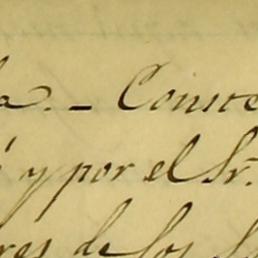 la. – Conste
y por el Sr.
res de los S